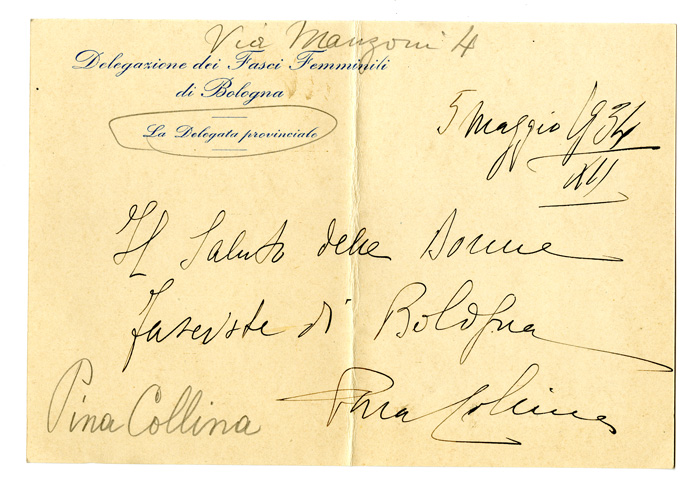 Via Manzoni 4
Delegazione dei Fasci Femminili
di Bologna
La Delegata provinciale
5 Maggio 1934
XII
Il Saluto delle Donne
Fasciste di Bologna
Pina Collina
Pina Collina